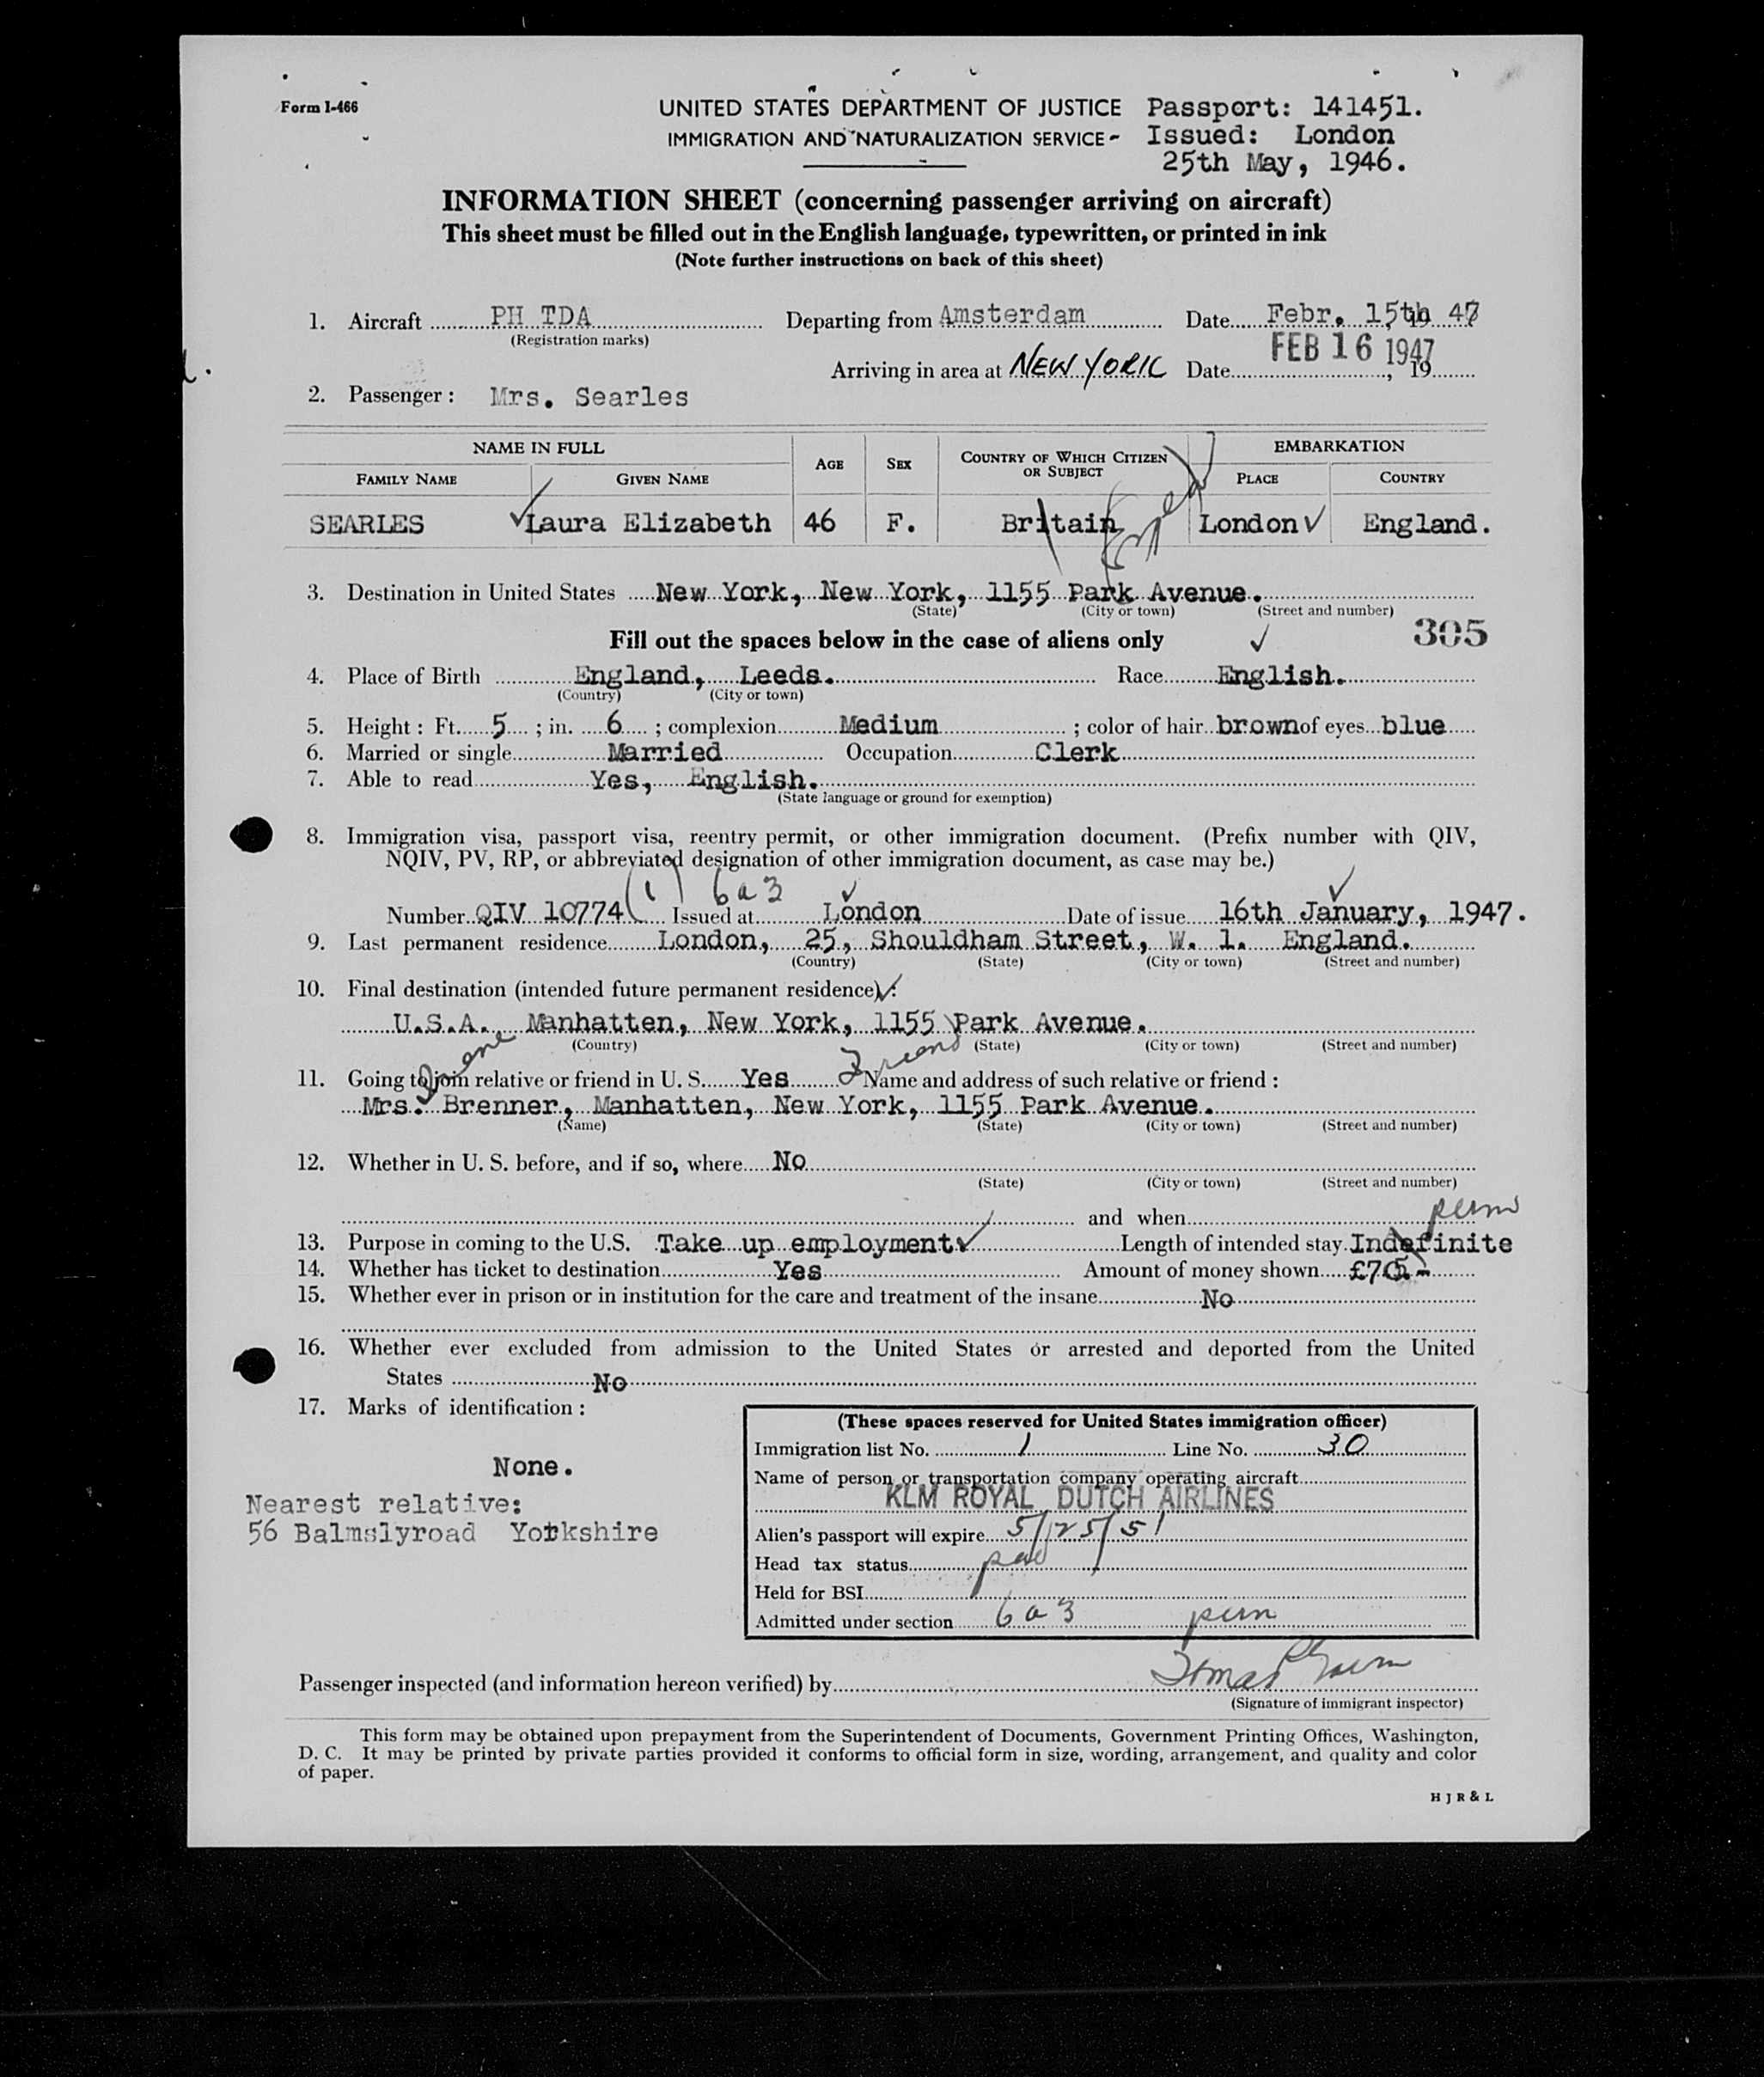 Form I-466
UNITED STATES DEPARTMENT OF JUSTICE Passport: 141451.
IMMIGRATION AND NATURALIZATION SERVICE Issued: London
25th May, 1946.
INFORMATION SHEET (concerning passenger arriving on aircraft)
This sheet must be filled out in the English language, typewritten, or printed in ink
(Note further instructions on back of this sheet)
1. Aircraft PH TDA Departing from Amsterdam Date Febr. 15th, 19 47
(Registration marks)
FEB 16 1947
Arriving in area at NEW YORK Date , 19
2. Passenger: Mrs. Searles
NAME IN FULL AGE SEX COUNTRY OF WHICH CITIZEN OR SUBJECT EMBARKATION
FAMILY NAME GIVEN NAME PLACE COUNTRY
SEARLES Laura Elizabeth 46 F. Britain London England.
3. Destination in United States New York, New York, 1155 Park Avenue.
(State) (City or town) (Street and number)
Fill out the spaces below in the case of aliens only 305
4. Place of Birth England, Leeds. Race English.
(Country) (City or town)
5. Height: Ft. 5 ; in. 6 ; complexion Medium ; color of hair brown of eyes blue
6. Married or single Married Occupation Clerk
7. Able to read Yes, English.
(State language or ground for exemption)
8. Immigration visa, passport visa, reentry permit, or other immigration document. (Prefix number with QIV,
NQIV, PV, RP, or abbreviated designation of other immigration document, as case may be.)
(1) 6a3
Number QIV 10774 Issued at London Date of issue 16th January, 1947.
9. Last permanent residence London, 25, Shouldham Street, W. 1. England.
(Country) (State) (City or town) (Street and number)
10. Final destination (intended future permanent residence):
U.S.A., Manhatten, New York, 1155 Park Avenue.
(Country) (State) (City or town) (Street and number)
Irene Friend
11. Going to join relative or friend in U. S. Yes Name and address of such relative or friend:
Mrs. Brenner, Manhatten, New York, 1155 Park Avenue.
(Name) (State) (City or town) (Street and number)
12. Whether in U. S. before, and if so, where No
(State) (City or town) (Street and number)
and when
perm
13. Purpose in coming to the U.S. Take up employment Length of intended stay Indefinite
14. Whether has ticket to destination Yes Amount of money shown £75-
15. Whether ever in prison or in institution for the care and treatment of the insane No
16. Whether ever excluded from admission to the United States or arrested and deported from the United
States No
17. Marks of identification:
None.
Nearest relative:
56 Balmslyroad Yorkshire
(These spaces reserved for United States immigration officer)
Immigration list No. 1 Line No. 30
Name of person or transportation company operating aircraft
KLM ROYAL DUTCH AIRLINES
Alien's passport will expire 5/25/51
Head tax status pd
Held for BSI
Admitted under section 6a3 perm
Passenger inspected (and information hereon verified) by
(Signature of immigrant inspector)
This form may be obtained upon prepayment from the Superintendent of Documents, Government Printing Offices, Washington,
D. C. It may be printed by private parties provided it conforms to official form in size, wording, arrangement, and quality and color
of paper.
H J R & L